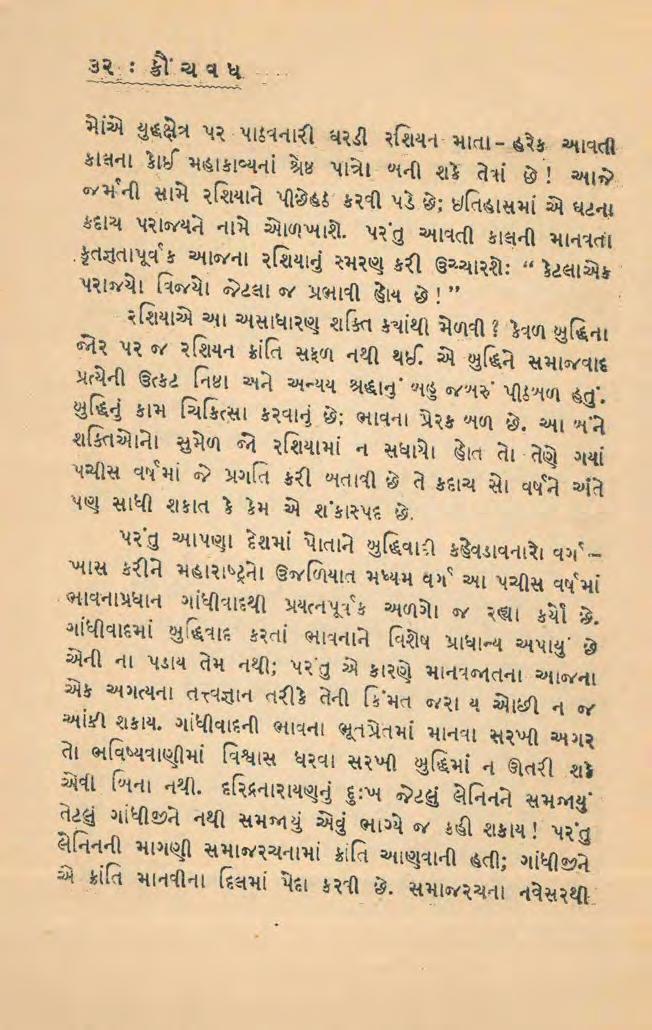 ૩૨ : ક્રૌંચવધ
મેાંએ યુદ્ધક્ષેત્ર પર પાઠવનારી ઘરડી રશિયન માતા – હરેક આવતી
કાલના કોઈ મહાકાવ્યનાં શ્રેષ્ઠ પાત્રો બની શકે તેવાં છે ! આજે
જર્મની સામે રશિયાને પીછેહઠ કરવી પડે છે; ઇતિહાસમાં એ ઘટના
કદાચ પરાજયને નામે ઓળખાશે. પરંતુ આવતી કાલની માનવતા
કૃતજ્ઞતાપૂર્વક આજના રશિયાનું સ્મરણ કરી ઉચ્ચારશે: “ કેટલાએક
પરાજયો વિજયો જેટલા જ પ્રભાવી હોય છે ! ”
રશિયાએ આ અસાધારણ શક્તિ ક્યાંથી મેળવી ? કેવળ બુદ્ધિના
જોર પર જ રશિયન ક્રાંતિ સફળ નથી થઈ. એ બુદ્ધિને સમાજવાદ
પ્રત્યેની ઉત્કટ નિષ્ઠા અને અન્યય શ્રદ્ધાનું બહુ જબરું પીઠબળ હતું.
બુદ્ધિનું કામ ચિકિત્સા કરવાનું છે; ભાવના પ્રેરક બળ છે. આ બંને
શક્તિઓનો સુમેળ જો રશિયામાં ન સધાયો હોત તો તેણે ગયાં
પચીસ વર્ષમાં જે પ્રગતિ કરી બતાવી છે તે કદાચ સો વર્ષને અંતે
પણ સાધી શકાત કે કેમ એ શંકાસ્પદ છે.
પરંતુ આપણા દેશમાં પોતાને બુદ્ધિવાદી કહેવડાવનારો વર્ગ –
ખાસ કરીને મહારાષ્ટ્રનો ઉજળિયાત મધ્યમ વર્ગ આ પચીસ વર્ષમાં
ભાવનાપ્રધાન ગાંધીવાદથી પ્રયત્નપૂર્વક અળગો જ રહ્યા કર્યો છે.
ગાંધીવાદમાં બુદ્ધિવાદ કરતાં ભાવનાને વિશેષ પ્રાધાન્ય અપાયું છે
એની ના પડાય તેમ નથી; પરંતુ એ કારણે માનવજાતના આજના
એક અગત્યના તત્ત્વજ્ઞાન તરીકે તેની કિંમત જરા ય ઓછી ન જ
આંકી શકાય. ગાંધીવાદની ભાવના ભૂતપ્રેતમાં માનવા સરખી અગર
તો ભવિષ્યવાણીમાં વિશ્વાસ ધરવા સરખી બુદ્ધિમાં ન ઊતરી શકે
એવી બિના નથી. દરિદ્રનારાયણનું દુઃખ જેટલું લેનિનને સમજાયું
તેટલું ગાંધીજીને નથી સમજાયું એવું ભાગ્યે જ કહી શકાય ! પરંતુ
લેનિનની માગણી સમાજરચનામાં ક્રાંતિ આણવાની હતી; ગાંધીજીને
એ ક્રાંતિ માનવીના દિલમાં પેદા કરવી છે. સમાજરચના નવેસરથી